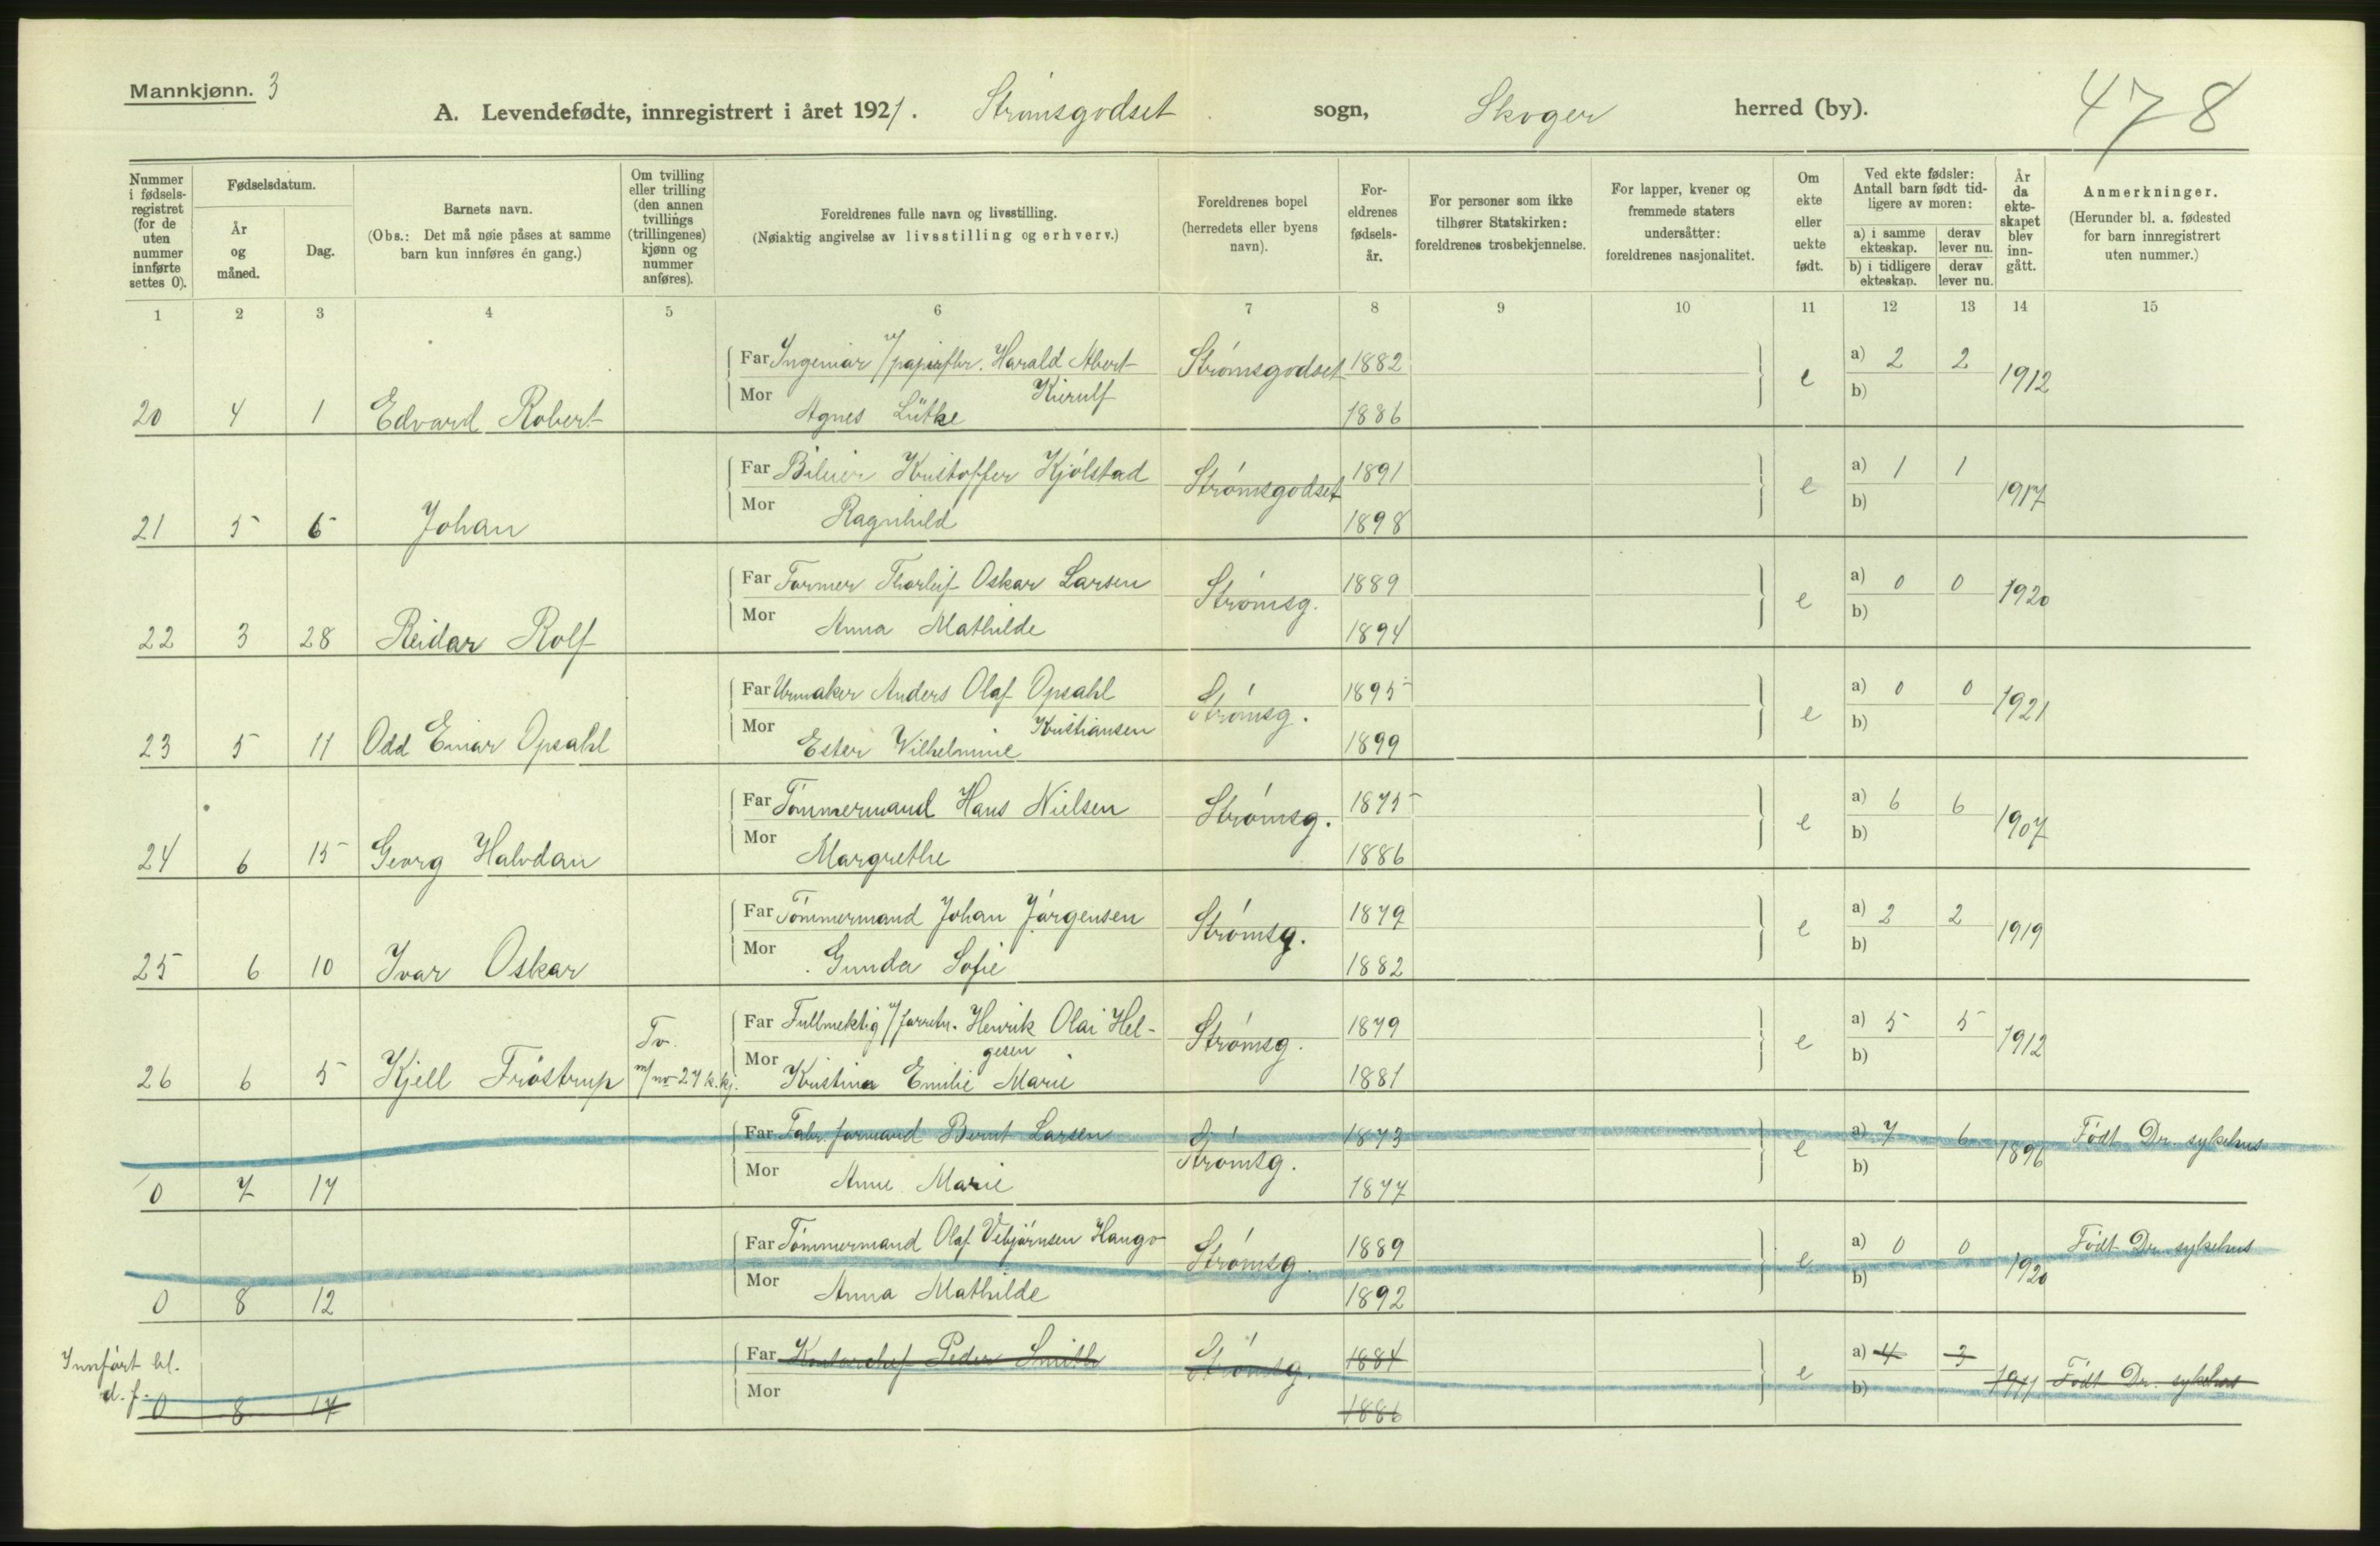 Mannkjønn. 3
A. Levendefødte, innregistrert i året 1921. Strømsgodset sogn, Skoger herred (by). 478
Nummer i fødselsregistret (for de uten nummer innførte settes 0).
Fødselsdatum.
År og måned.
Dag.
Barnets navn.
(Obs.: Det må nøie påses at samme barn kun innføres én gang.)
Om tvilling eller trilling (den annen tvillings (trillingenes) kjønn og nummer anføres).
Foreldrenes fulle navn og livsstilling.
(Nøiaktig angivelse av livsstilling og erhverv.)
Foreldrenes bopel (herredets eller byens navn).
Foreldrenes fødselsår.
For personer som ikke tilhører Statskirken: foreldrenes trosbekjennelse.
For lapper, kvener og fremmede staters undersåtter: foreldrenes nasjonalitet.
Om ekte eller uekte født.
Ved ekte fødsler: Antall barn født tidligere av moren:
a) i samme ekteskap. derav lever nu.
b) i tidligere ekteskap. derav lever nu.
År da ekteskapet blev inngått.
Anmerkninger.
(Herunder bl. a. fødested for barn innregistrert uten nummer.)
1 2 3 4 5 6 7 8 9 10 11 12 13 14 15
Far Ingeniør v/papirfbr. Harald Abert Kierulf Strømsgodset 1882 e a) 2 2 1912
20 4 1 Edvard Robert Mor Agnes Lütke 1886 b)
Far Bileier Kristoffer Kjølstad Strømsgodset 1891 e a) 1 1 1917
21 5 6 Johan Mor Ragnhild 1898 b)
Far Former Thorleif Oskar Larsen Strømsg. 1889 e a) 0 0 1920
22 3 28 Reidar Rolf Mor Anna Mathilde 1894 b)
Far Urmaker Anders Olaf Opsahl Strømsg. 1895 e a) 0 0 1921
23 5 11 Odd Einar Opsahl Mor Ester Vilhelmine Kristiansen 1899 b)
Far Tømmermand Hans Nielsen Strømsg. 1875 e a) 6 6 1907
24 6 15 Georg Halvdan Mor Margrethe 1886 b)
Far Tømmermand Johan Jørgensen Strømsg. 1879 e a) 2 2 1919
25 6 10 Ivar Oskar Mor Gunda Sofie 1882 b)
Far Fullmektig v/forretn. Henrik Olai Helgesen Strømsg. 1879 e a) 5 5 1912
26 6 5 Kjell Frøstrup Tv. m/no 27 k.kj. Mor Kristina Emilie Marie 1881 b)
Far Fabr. formand Bernt Larsen Strømsg. 1873 e a) 7 6 1896 Født Dr. sykehus
0 7 17 Mor Anne Marie 1877 b)
Far Tømmermand Olaf Vebjørnsen Haugo Strømsg. 1889 e a) 0 0 1920 Født Dr. sykehus
0 8 12 Mor Anna Mathilde 1892 b)
Innført bl. d. f.
Far Kontorchef Peder Smith Strømsg. 1884 e a) 4 3 1911 Født Dr. sykehus
0 8 17 Mor 1886 b)